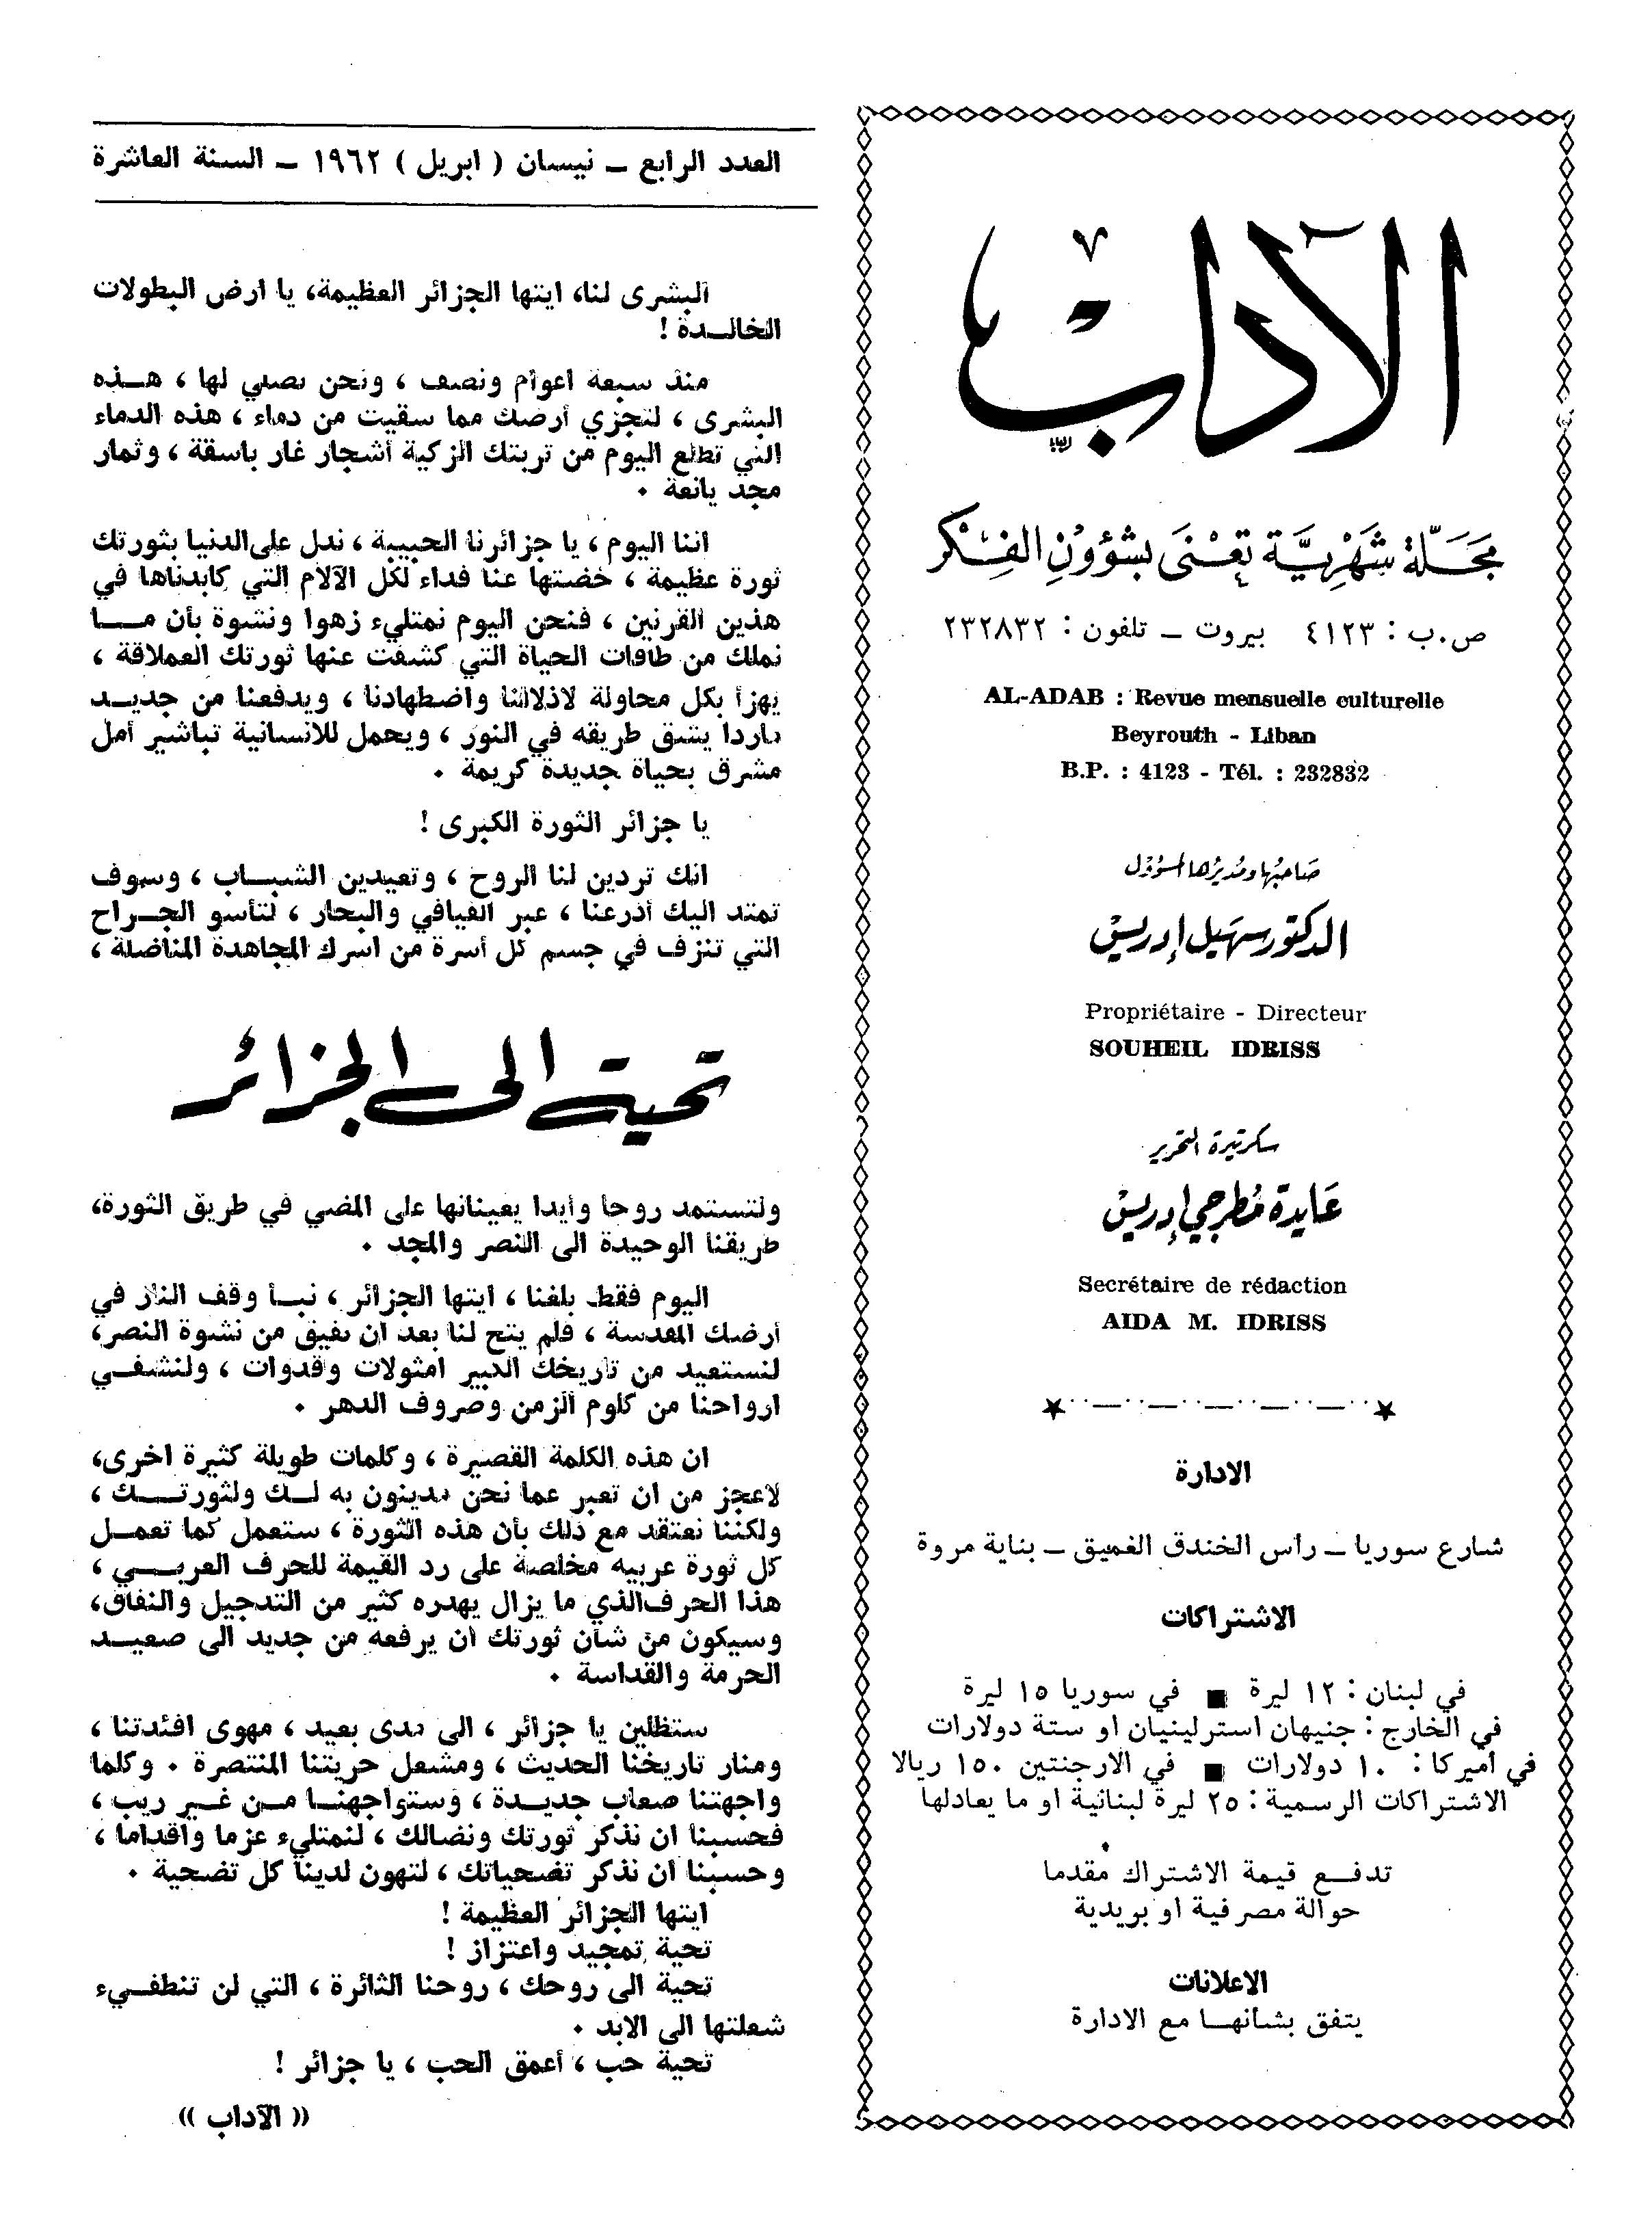 الآداب
مجلة شهرية تعنى بشؤون الفكر
ص.ب : ٤١٢٣ بيروت ــ تلفون : ٢٣٢٨٣٢
AL-ADAB : Revue mensuelle culturelle
Beyrouth - Liban
B.P. : 4123 - Tél. : 232832
صاحبها ومديرها المسؤول
الدكتور سهيل إدريس
Propriétaire - Directeur
SOUHEIL IDRISS
سكرتيرة التحرير
عايدة مطرجي إدريس
Secrétaire de rédaction
AIDA M. IDRISS
الادارة
شارع سوريا ــ راس الخندق الغميق ــ بناية مروة
الاشتراكات
في لبنان : ١٢ ليرة ■ في سوريا ١٥ ليرة
في الخارج : جنيهان استرلينيان او ستة دولارات
في اميركا : ١٠ دولارات ■ في الارجنتين ١٥٠ ريالا
الاشتراكات الرسمية : ٢٥ ليرة لبنانية او ما يعادلها
تدفـع قيمة الاشتراك مقدما
حوالة مصرفية او بريدية
الاعلانات
يتفق بشانهـا مع الادارة
العدد الرابع ــ نيسان ( ابريل ) ١٩٦٢ ــ السنة العاشرة
البشرى لنا، ايتها الجزائر العظيمة، يا ارض البطولات
الخالـدة !
منذ سبعة اعوام ونصف ، ونحن نصلي لها ، هـذه
البشرى ، لتجزي أرضك مما سقيت من دماء ، هذه الدماء
التي تطلع اليوم من تربتك الزكية أشجار غار باسقة ، وثمار
مجد يانعة .
اننا اليوم ، يا جزائرنا الحبيبة ، ندل على الدنيا بثورتك
ثورة عظيمة ، خضتها عنا فداء لكل الآلام التي كابدناها في
هذين القرنين ، فنحن اليوم نمتليء زهوا ونشوة بأن مـا
نملك من طاقات الحياة التي كشفت عنها ثورتك العملاقة ،
يهزأ بكل محاولة لاذلالنا واضطهادنا ، ويدفعنا من جديـد
ماردا يشق طريقه في النور ، ويحمل للانسانية تباشير أمل
مشرق بحياة جديدة كريمة .
يا جزائر الثورة الكبرى !
انك تردين لنا الروح ، وتعيدين الشبـاب ، وسوف
تمتد اليك أذرعنا ، عبر الفيافي والبحار ، لتأسو الجـراح
التي تنزف في جسم كل أسرة من اسرك المجاهدة المناضلة ،
تحية الى الجزائر
ولتستمد روحا وأيدا يعينانها على المضي في طريق الثورة،
طريقنا الوحيدة الى النصر والمجد .
اليوم فقط بلغنا ، ايتها الجزائر ، نبـأ وقف النار في
أرضك المقدسة ، فلم يتح لنا بعد ان نفيق من نشوة النصر،
لنستعيد من تاريخك الكبير امثولات وقدوات ، ولنشفـي
ارواحنا من كلوم الزمن وصروف الدهر .
ان هذه الكلمة القصيرة ، وكلمات طويلة كثيرة اخرى،
لاعجز من ان تعبر عما نحن مدينون به لـك ولثورتـك ،
ولكننا نعتقد مع ذلك بأن هذه الثورة ، ستعمل كما تعمـل
كل ثورة عربيه مخلصة على رد القيمة للحرف العربـي ،
هذا الحرف الذي ما يزال يهدره كثير من التدجيل والنفاق،
وسيكون من شأن ثورتك ان يرفعه من جديد الى صعيـد
الحرمة والقداسة .
ستظلين يا جزائر ، الى مدى بعيد ، مهوى افئدتنا ،
ومنار تاريخنا الحديث ، ومشعل حريتنا المنتصرة . وكلما
واجهتنا صعاب جديـدة ، وستواجهنـا مـن غـير ريب ،
فحسبنا ان نذكر ثورتك ونضالك ، لنمتليء عزما واقداما ،
وحسبنا ان نذكر تضحياتك ، لتهون لدينا كل تضحية .
ايتها الجزائر العظيمة !
تحية تمجيد واعتزاز !
تحية الى روحك ، روحنا الثائرة ، التي لن تنطفـيء
شعلتها الى الابد .
تحية حب ، أعمق الحب ، يا جزائر !
(( الآداب ))